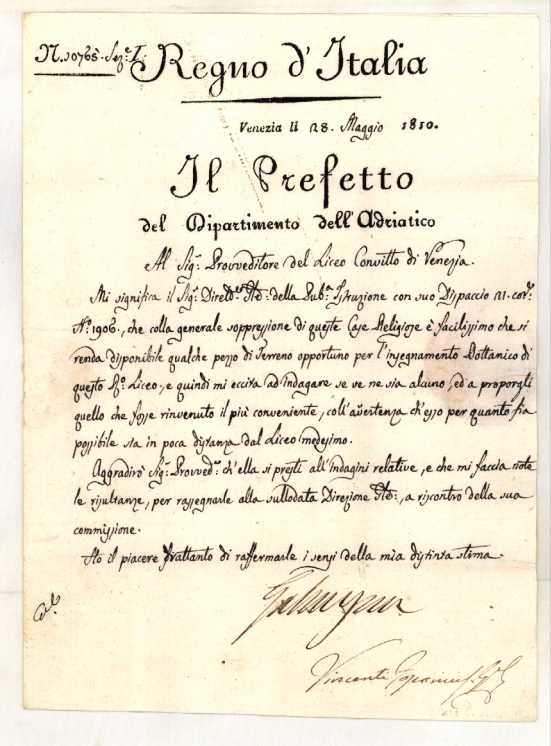 N. 10765. Sez.e I.
Regno d'Italia
Venezia li 28. Maggio 1810.
Il Prefetto
del Dipartimento dell'Adriatico
Al Sig.r Provveditore del Liceo Convitto di Venezia.
Mi significa il Sig.r Dirett.re della Pub.a Istruzione con suo Dispaccio 21. corr.e
N.o 1906., che colla generale soppressione di queste Case Religiose è facilissimo che si
renda disponibile qualche pezzo di Terreno opportuno per l'insegnamento Bottanico di
questo Liceo, e quindi mi eccita ad indagare se ve ne sia alcuno, ed a proporgli
quello che fosse rinvenuto il più conveniente, coll'avertenza ch'esso per quanto fia
possibile sia in poca distanza dal Liceo medesimo.
Aggradirò Sig.r Provved.re ch'ella si presti all'indagini relative, e che mi faccia note
le risultanze, per rassegnarle alla sullodata Direzione, a riscontro della sua
commissione.
Ho il piacere frattanto di raffermarle i sensi della mia distinta stima.